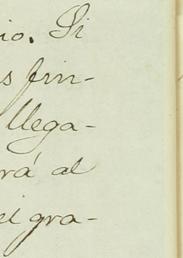 io. Si
s fin-
llega-
rá al
ei gra-